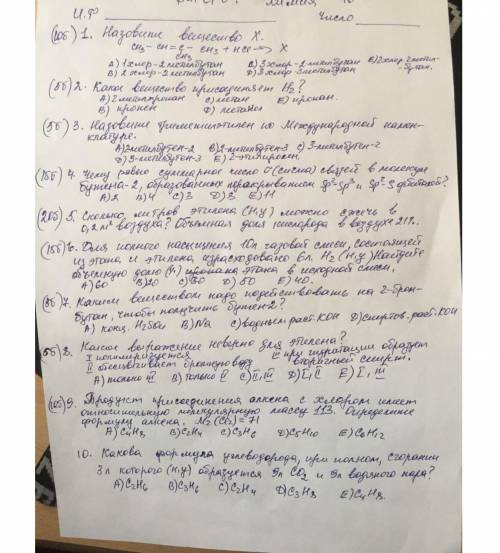 И.Ф Число
(10б) 1. Назовите вещество X.
CH₃ - CH = C - CH₃ + HCl → X
CH₃
A) 1 хлор-2 метилбутан C) 3 хлор-2 метилбутан E) 2 хлор 2 метил-
B) 2 хлор-2 метилбутан D) 3 хлор-3 метилбутан бутан.
(5б) 2. Какое вещество присоединяет H₂?
A) 2 метилпропан C) метан E) пропан.
B) пропен D) метанол
(5б) 3. Назовите триметилэтилен по Международной номен-
клатуре.
A) 2 метилбутен-2 B) 2-метилбутен-3 C) 3-метилбутен-2
D) 3-метилбутен-3 E) 2-этилпропен.
(15б) 4. Чему равно суммарное число σ (сигма) связей в молекуле
бутена-2, образованных перекрыванием Sp²-Sp³ и Sp²-S орбиталей?
A) 2 B) 4 C) 3 D) 8 E) 11
(20б) 5. Сколько литров этилена (н.у) можно сжечь в
0,2 м³ воздуха? Объемная доля кислорода в воздухе 21%.
(15б) 6. Для полного насыщения 10л газовой смеси, состоящей
из этана и этилена, израсходовано 6л H₂ (н.у) Найдите
объемную долю (%) этана в исходной смеси.
A) 60 B) 20 C) 30 D) 50 E) 40.
7. Каким веществом надо подействовать на 2-бром-
бутан, чтобы получить бутен-2?
A) конц. H₂SO₄ B) Na C) водным раст. KOH D) спиртов. раст. KOH
(5б) 8. Какое выражение неверно для этилена?
I полимеризуется III при гидратации образует
II обесцвечивает бромную воду вторичный спирт.
A) только III B) только II C) II, III D) I, II E) I, III
(10б) 9. Продукт присоединения алкена с хлором имеет
относительную молекулярную массу 113. Определите
формулу алкена. Mr (Cl₂) = 71
A) C₄H₈ B) C₂H₄ C) C₃H₆ D) C₅H₁₀ E) C₆H₁₂
10. Какова формула углеводорода, при полном сгорании
3л которого (н.у) образуется 9л CO₂ и 9л водяного пара?
A) C₂H₆ B) C₃H₆ C) C₂H₄ D) C₃H₈ E) C₄H₈.